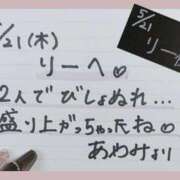 5/21
りー
5/21(木)
りーへ♡
2人でびしょぬれ...
盛り上がっちゃったね♡
あわみより